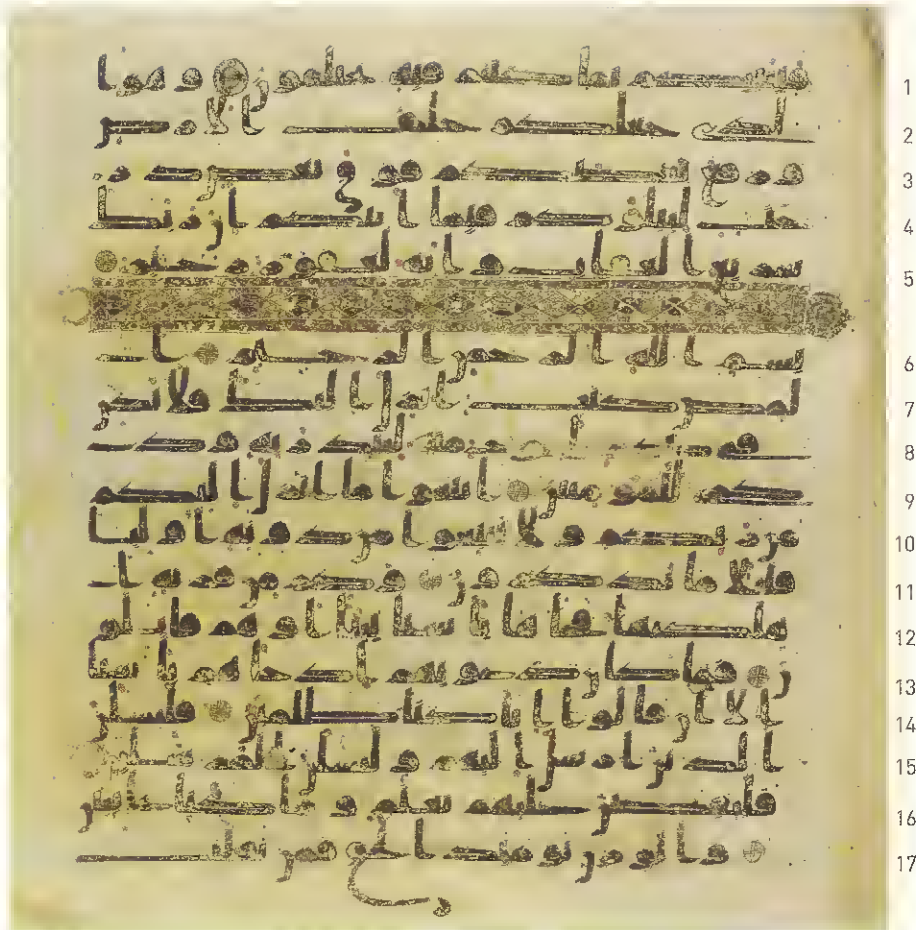 فينبيكم بما كنتم فيه تختلفون و هو ا
لذى جعلكم خلئف الارض
و رفع بعضكم فوق بعض در
جت ليبلوكم فيما اتيكم ان ربك
سريع العقاب وانه لغفور رحيم
بسم الله الرحمن الرحيم ا
لمص كتب انزل اليك فلا يكن
فى صدرك حرج منه لتنذر به وذ
كرى للمومنين اتبعوا ما انزل اليكم
من ربكم ولا تتبعوا من دونه اوليا
قليلا ما تذكرون وكم من قرية ا
هلكنها فجاها باسنا بيتا او هم قايلو
ن فما كان دعويهم اذ جاهم باسنا
الا ان قالوا انا كنا ظلمين فلنسلن
الذين ارسل اليهم ولنسلن المرسلين
فلنقصن عليهم بعلم وما كنا غايبين
والوزن يوميذ الحق فمن ثقلت
1
2
3
4
5
6
7
8
9
10
11
12
13
14
15
16
17